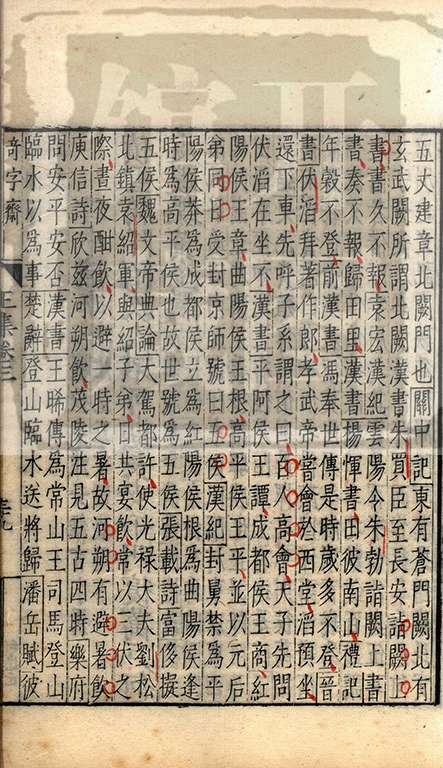 五丈建章北闕門也關中記東有蒼門闕北有
玄武闕所謂北闕漢書朱買臣至長安詣闕上
書書久不報袁宏漢紀雲陽令朱勃詣闕上書
書奏不報歸田里漢書楊惲書田彼南山禮記
年穀不登前漢書馮奉世傳是時歲多不登晉
書伏滔拜著作郎孝武帝嘗會於西堂滔預坐
還下車先呼子系謂之曰百人高會天子先問
伏滔在坐不漢書河平阿侯王譚成都侯王商紅
陽侯王章曲陽侯王根高平侯王平並以元后
弟同日受封京師號曰五侯漢紀封舅禁為平
陽侯莽為成都侯立為紅陽侯根為曲陽侯逢
時為高平侯也故世號為五侯張載詩富侈擬
五侯魏文帝典論大駕都許使光祿大夫劉松
北鎮袁紹軍與紹子弟日共宴飲常以三伏之
際晝夜酣飲以避一時之暑故河朔有避暑飲
庾信詩欣茲河朔飲茂陵注見五古四時樂府
問安平安否漢書王晞傳為常山王司馬登山
臨水以為事楚辭登山臨水送將歸潘岳賦彼
奇字齋
上集卷三